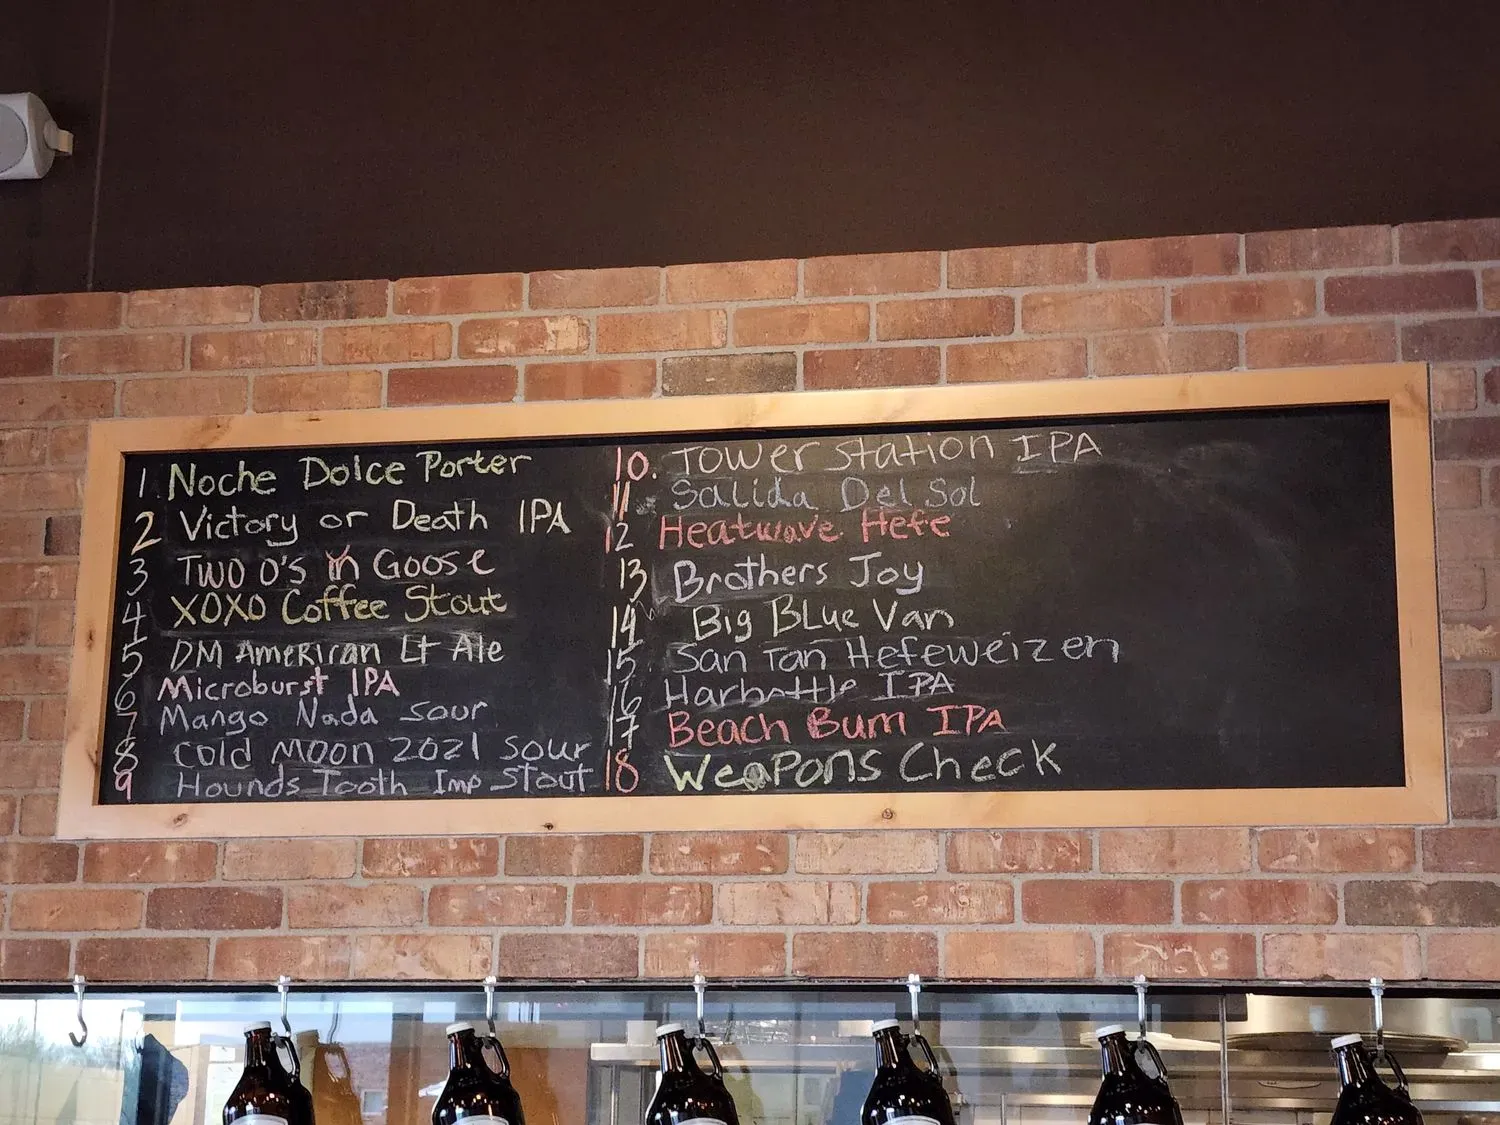 1. Noche Dolce Porter
2 Victory or Death IPA
3 TWO O'S in Goose
4 XOXO Coffee Stout
5 DM American Lt Ale
6 Microburst IPA
7 Mango Nada Sour
8 Cold Moon 2021 Sour
9 Hounds Tooth Imp Stout
10. Tower Station IPA
11 Salida Del Sol
12 Heatwave Hefe
13 Brothers Joy
14 Big Blue Van
15 San Tan Hefeweizen
16 Harbottle IPA
17 Beach Bum IPA
18 Weapons Check